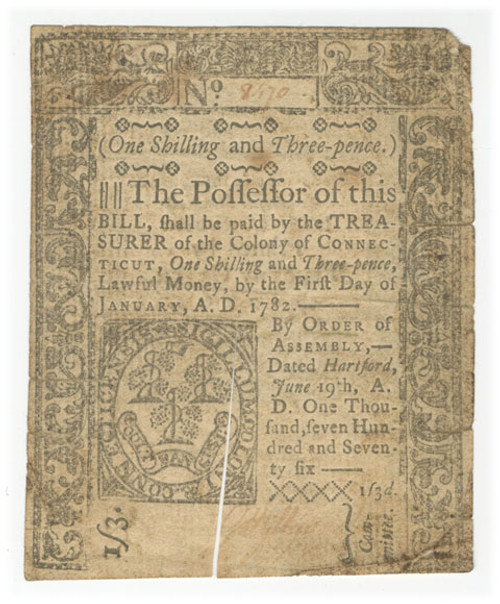 Nº 8570
(One Shilling and Three-pence.)
The Poſſeſſor of this
BILL, ſhall be paid by the TREA-
SURER of the Colony of CONNEC-
TICUT, One Shilling and Three-pence,
Lawful Money, by the Firſt Day of
JANUARY, A. D. 1782.———
By ORDER of
ASSEMBLY,—
Dated Hartford,
June 19th, A.
D. One Thou-
ſand,ſeven Hun-
dred and Seven-
ty ſix ——
1ſ3d.
1ſ3.
Com-
mittee.